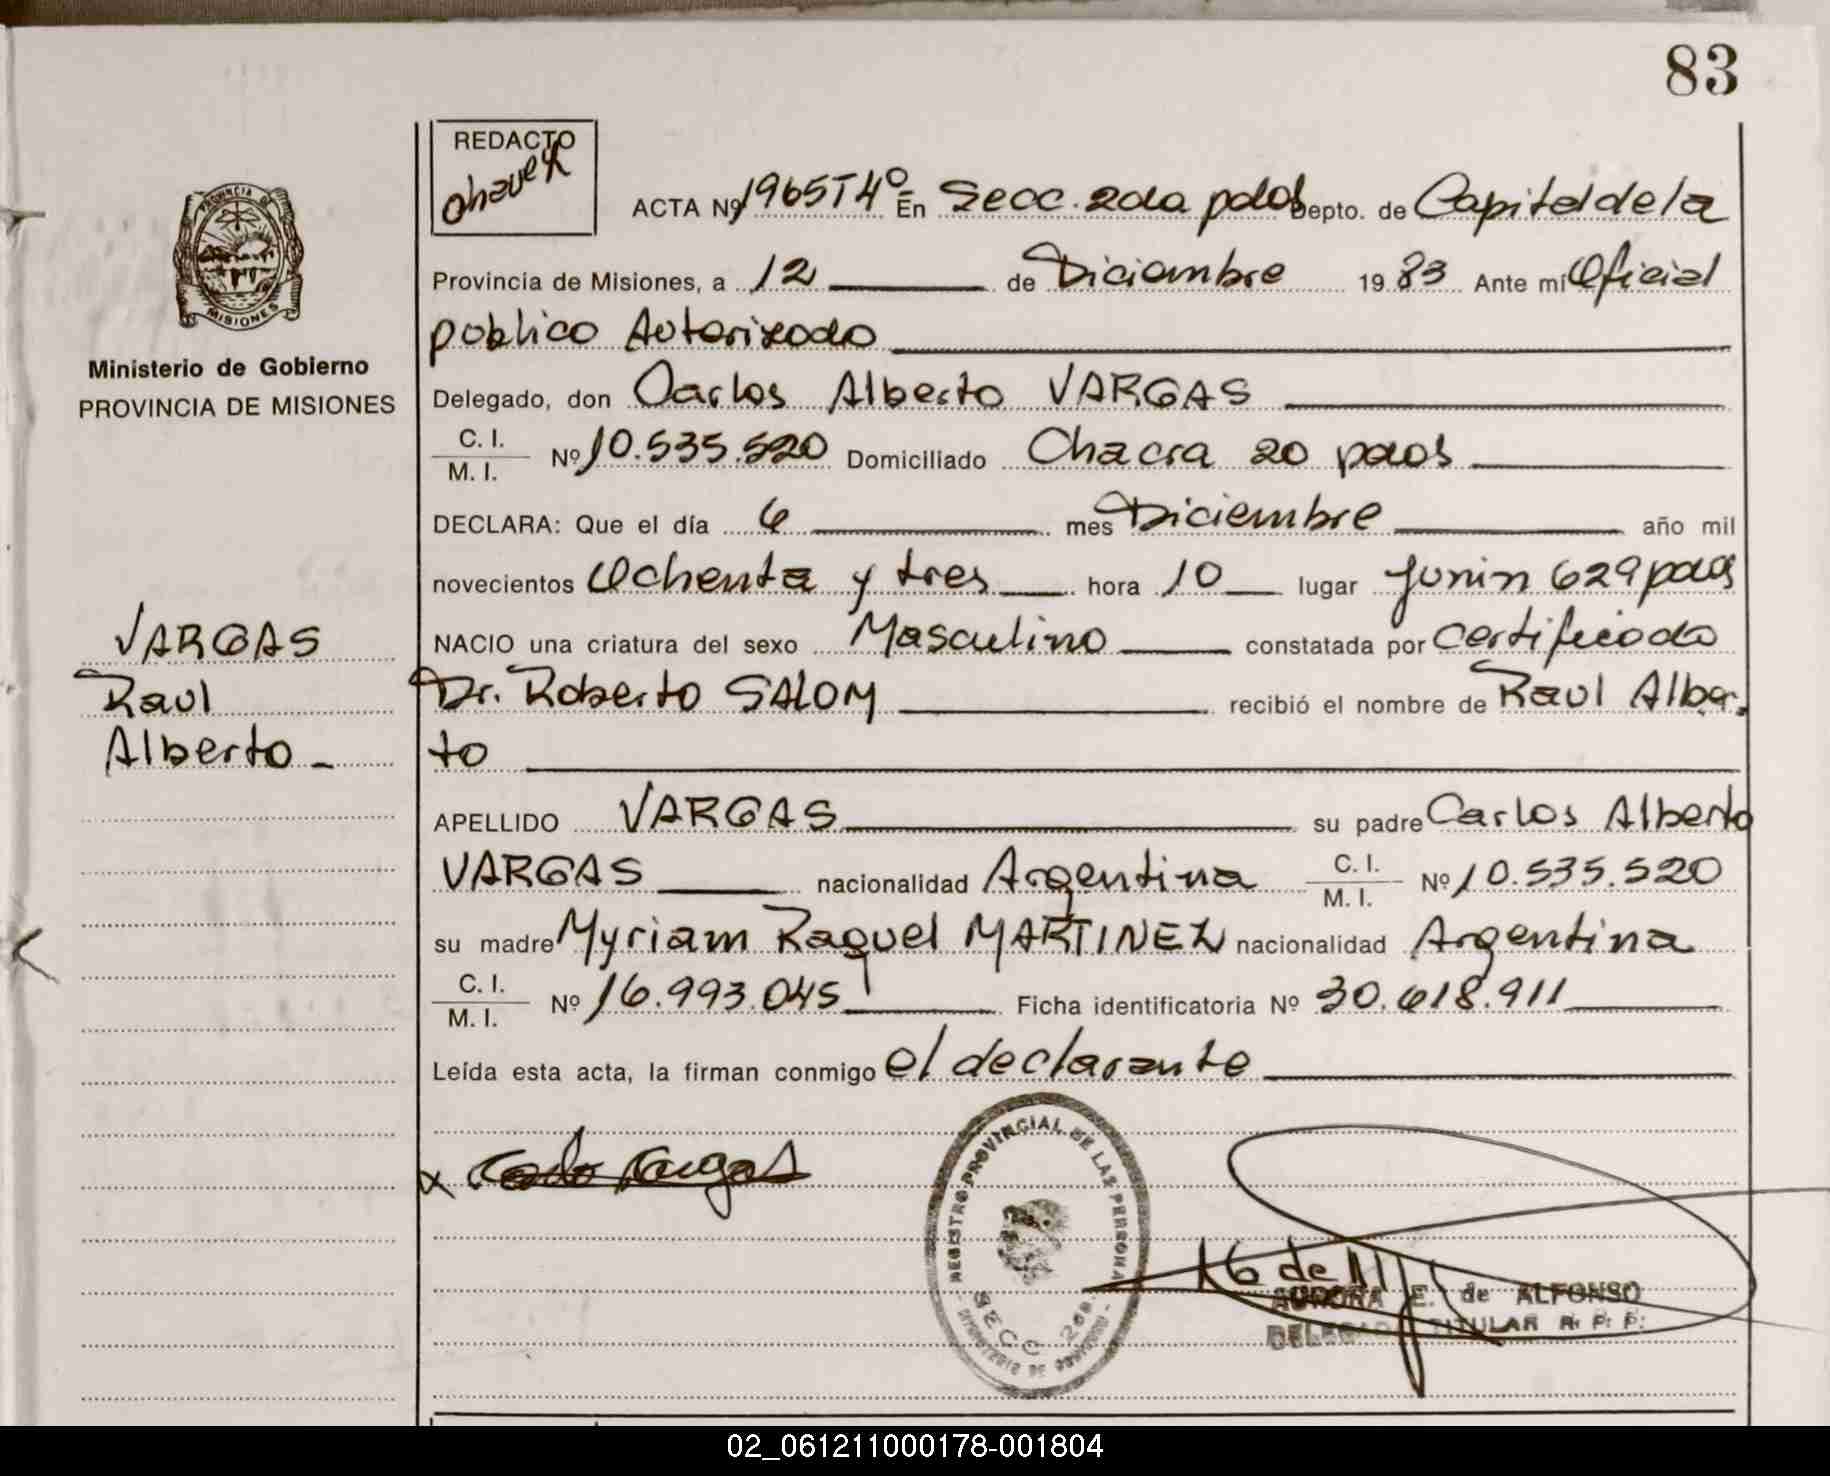 83
REDACTO
Chavez
ACTA Nº 1965 T4º En Secc. 2da pdas Depto. de Capital de la
Provincia de Misiones, a 12 de Diciembre 1983 Ante mí Oficial
publico Autorizado
Delegado, don Carlos Alberto VARGAS
C. I.
M. I. Nº 10.535.520 Domiciliado Chacra 20 pdas
DECLARA: Que el día 6 mes Diciembre año mil
novecientos Ochenta y tres hora 10 lugar Junin 629 pdas
NACIO una criatura del sexo Masculino constatada por Certificado
Dr. Roberto SALOM recibió el nombre de Raul Alber-
to
APELLIDO VARGAS su padre Carlos Alberto
VARGAS nacionalidad Argentina C. I.
M. I. Nº 10.535.520
su madre Myriam Raquel MARTINEZ nacionalidad Argentina
C. I.
M. I. Nº 16.993.045 Ficha identificatoria Nº 30.618.911
Leída esta acta, la firman conmigo el declarante
x Carlos Vargas
PROVINCIA DE
MISIONES
Ministerio de Gobierno
PROVINCIA DE MISIONES
VARGAS
Raul
Alberto -
REGISTRO PROVINCIAL DE LAS PERSONAS
SECC 2da
MINISTERIO DE GOBIERNO
AURORA E. de ALFONSO
DELEGADA TITULAR R. P. P.
02_061211000178-001804